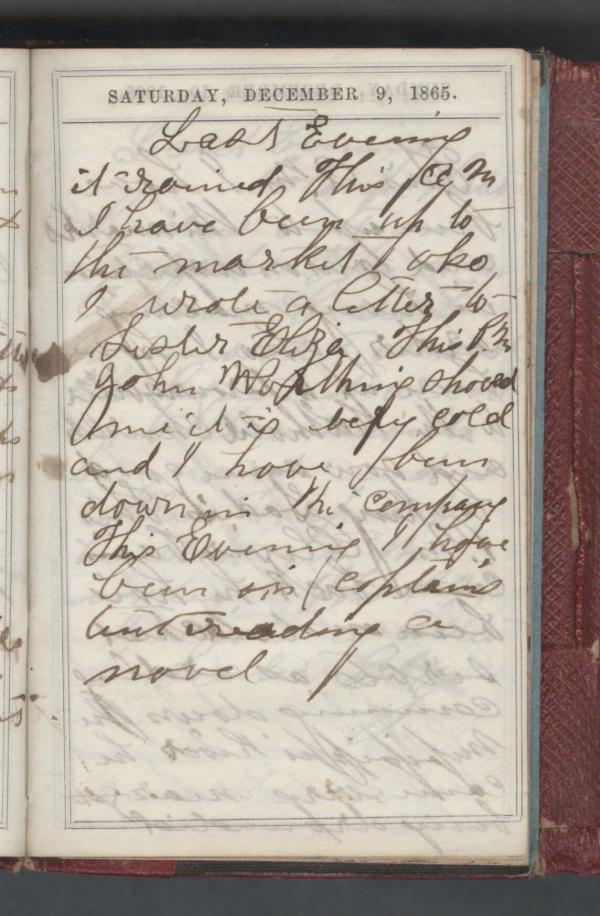 SATURDAY, DECEMBER 9, 1865.
Last Evening
it rained This A M
I have been up to
the market also
I wrote a letter to
Sister Eliza This P.M
John Worthing shaved
me it is very cold
and I have been
down in the company
This Evening I have
been in Captains
tent reading a
novel